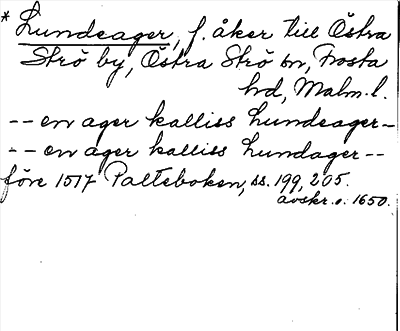 * Lundeager, f. åker till Östra
Strö by, Östra Strö sn, Frosta
hd, Malm. l.
-- en ager kalliss Lundeager -
-- en ager kalliss Lundager --
före 1517 Palteboken, ss. 199, 205.
avskr. o. 1650.